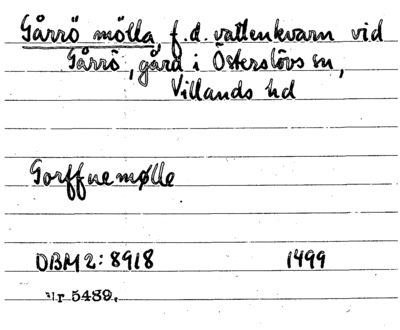 Gårrö mölla, f.d. vattenkvarn vid
Gårrö, gård i Österslövs sn,
Villands hd
Gorffuemølle
DBM2: 8918 1499
Nr 5489.